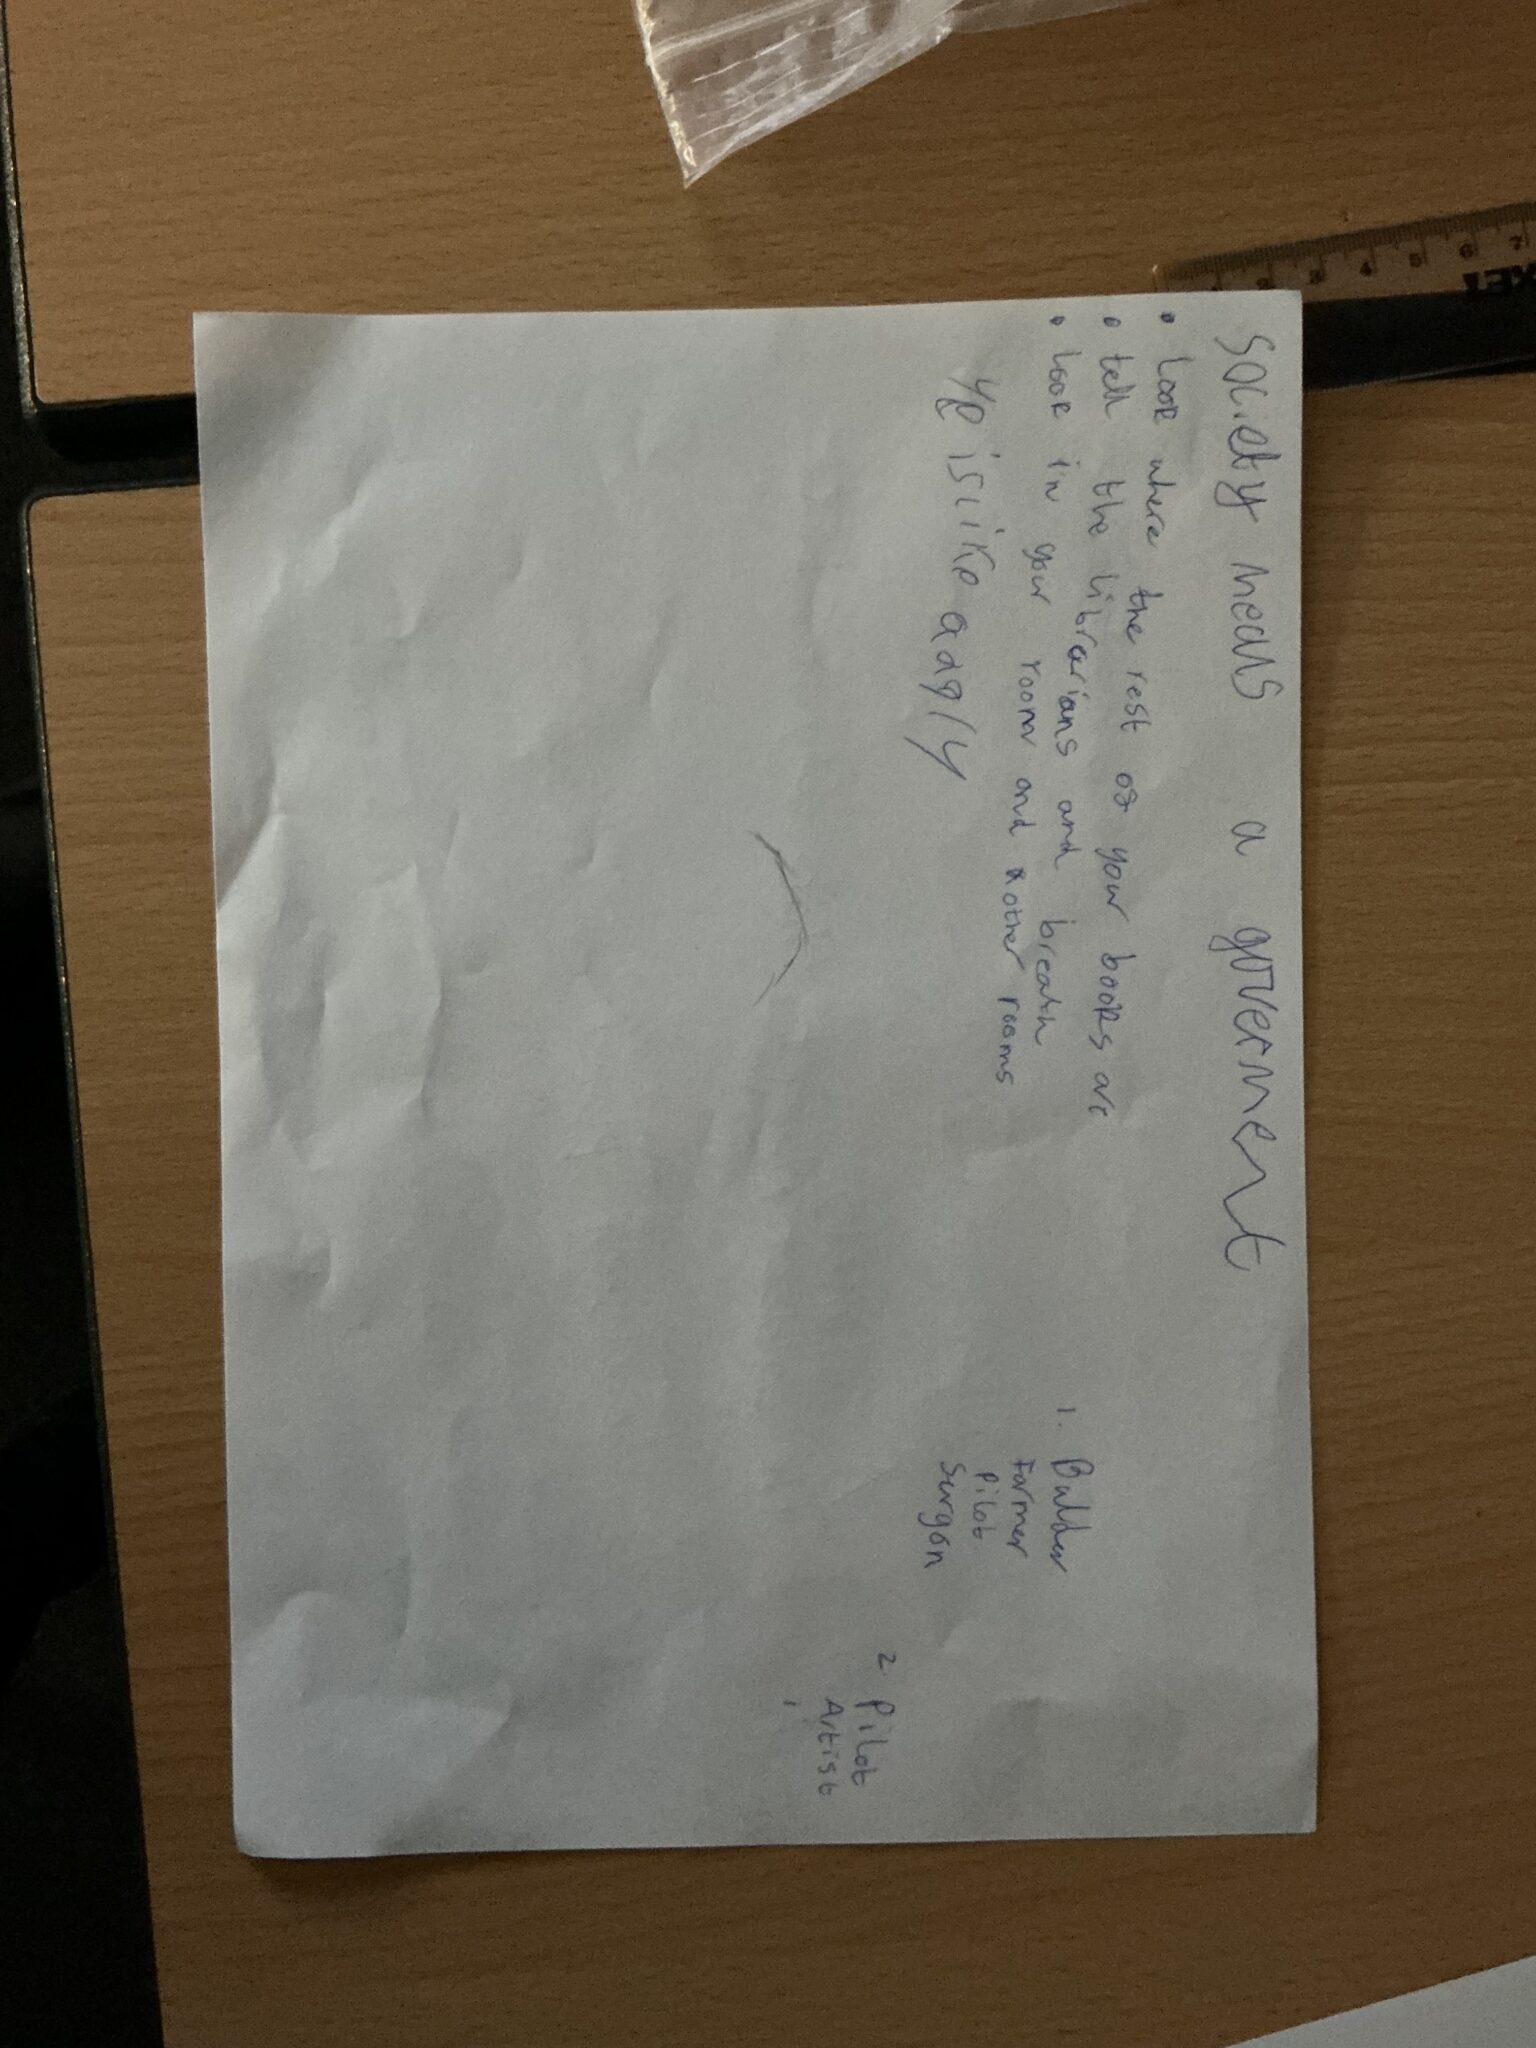 Society means a goverment
• Look where the rest of your books are
• tell the librarians and breath
• look in your room and other rooms
1. Builder
Farmer
Pilot
Surgon
2. Pilot
Artist
2 3 4 5 6 7